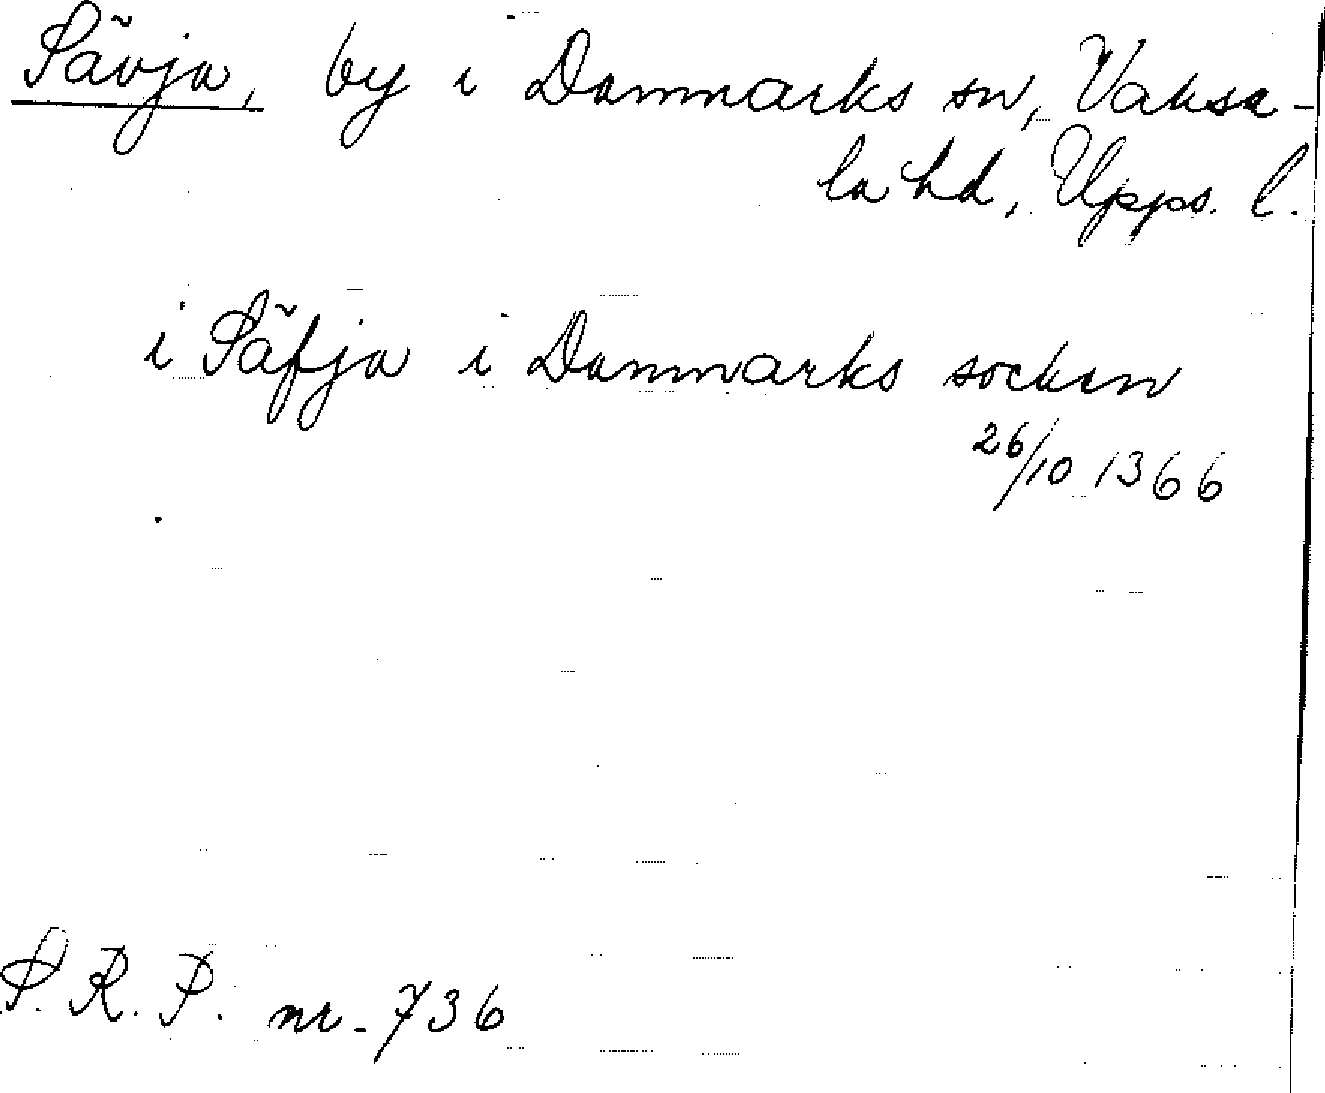 Sävja, by i Danmarks sn, Vaksa-
la hd, Upps. l.
i Säfja i Danmarks socken
26/10 1366
S.R.P. nr. 736